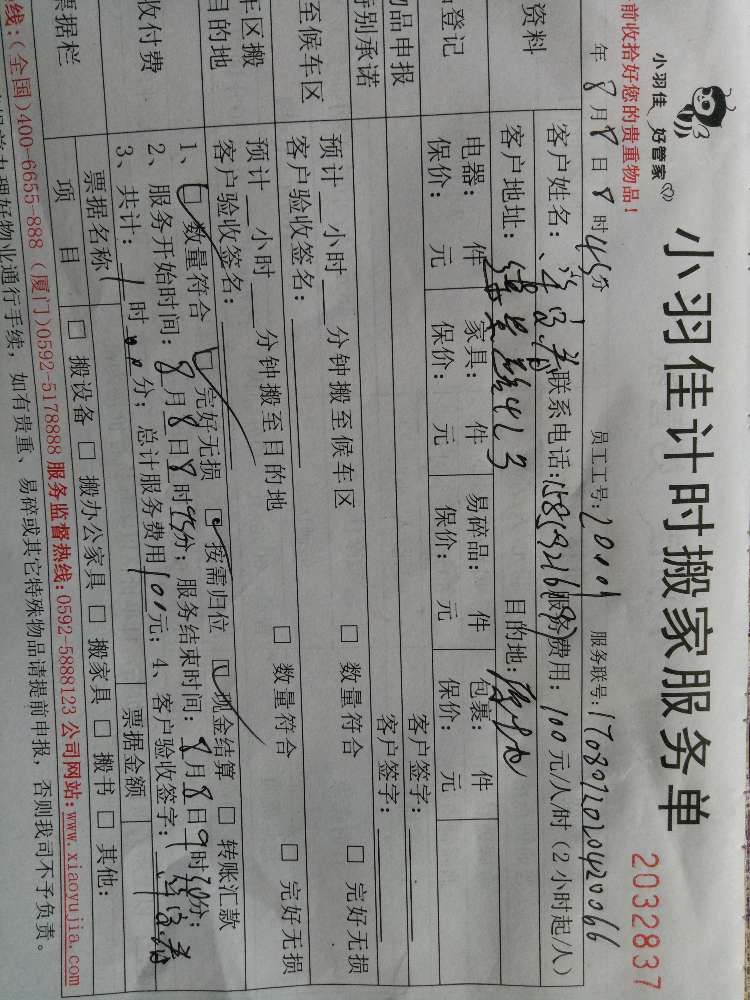 小羽佳 好管家
小羽佳计时搬家服务单
2032837
前收拾好您的贵重物品！
年8月8日8时45分 员工工号：20009 服务联号：
资料
客户姓名： 联系电话： 服务费用：100元/人/时（2小时起/人）
客户地址： 目的地：
登记
电器： 件 家具： 件 易碎品： 件 包裹： 件
保价： 元 保价： 元 保价： 元 保价： 元
品申报 客户签字：
别承诺 客户签字：
至候车区
预计 小时 分钟搬至候车区 □ 数量符合 □ 完好无损
客户验收签名：
车区搬
目的地
预计 小时 分钟搬至目的地 □ 数量符合 □ 完好无损
客户验收签名：
收付费
1、□ 数量符合 □ 完好无损 □ 按需归位 □ 现金结算 □ 转账汇款
2、服务开始时间：8月8日8时45分；服务结束时间：8月8日9时 分；
3、共计：1时00分；总计服务费用100元；4、客户验收签字：
票据栏
票据名称 票据金额
项 目 □ 搬设备 □ 搬办公家具 □ 搬家具 □ 搬书 □ 其他：
线：(全国)400-6655-888（厦门)0592-5178888 服务监督热线：0592-5888123 公司网站：www.xiaoyujia.com
理好物业通行手续，如有贵重、易碎或其它特殊物品请提前申报，否则我司不予负责。